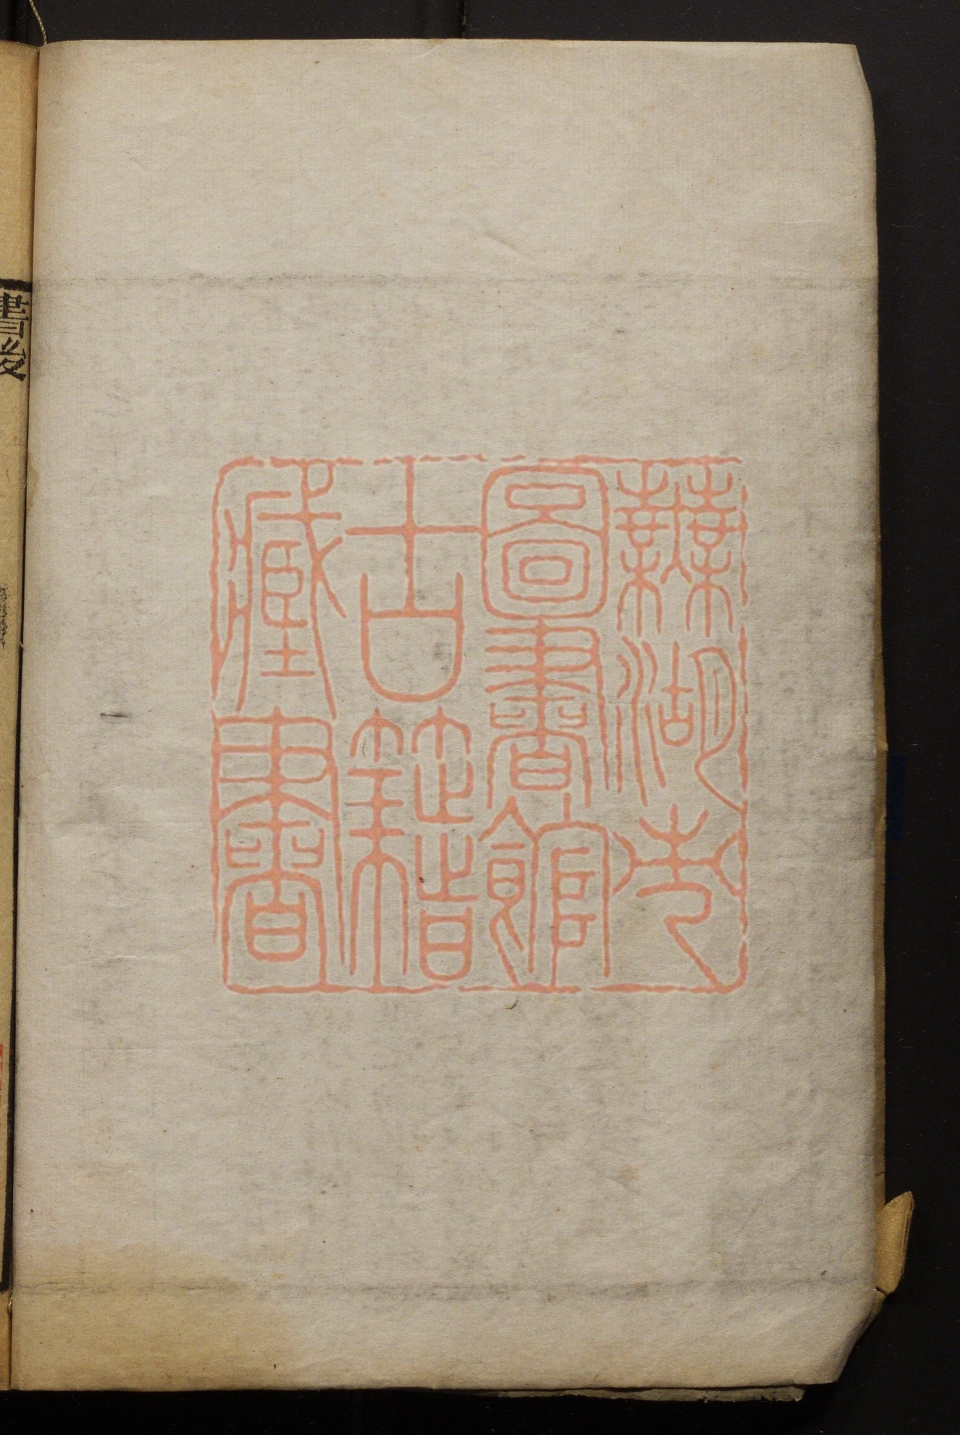 蕪湖市
圖書館
古籍
藏書
書後